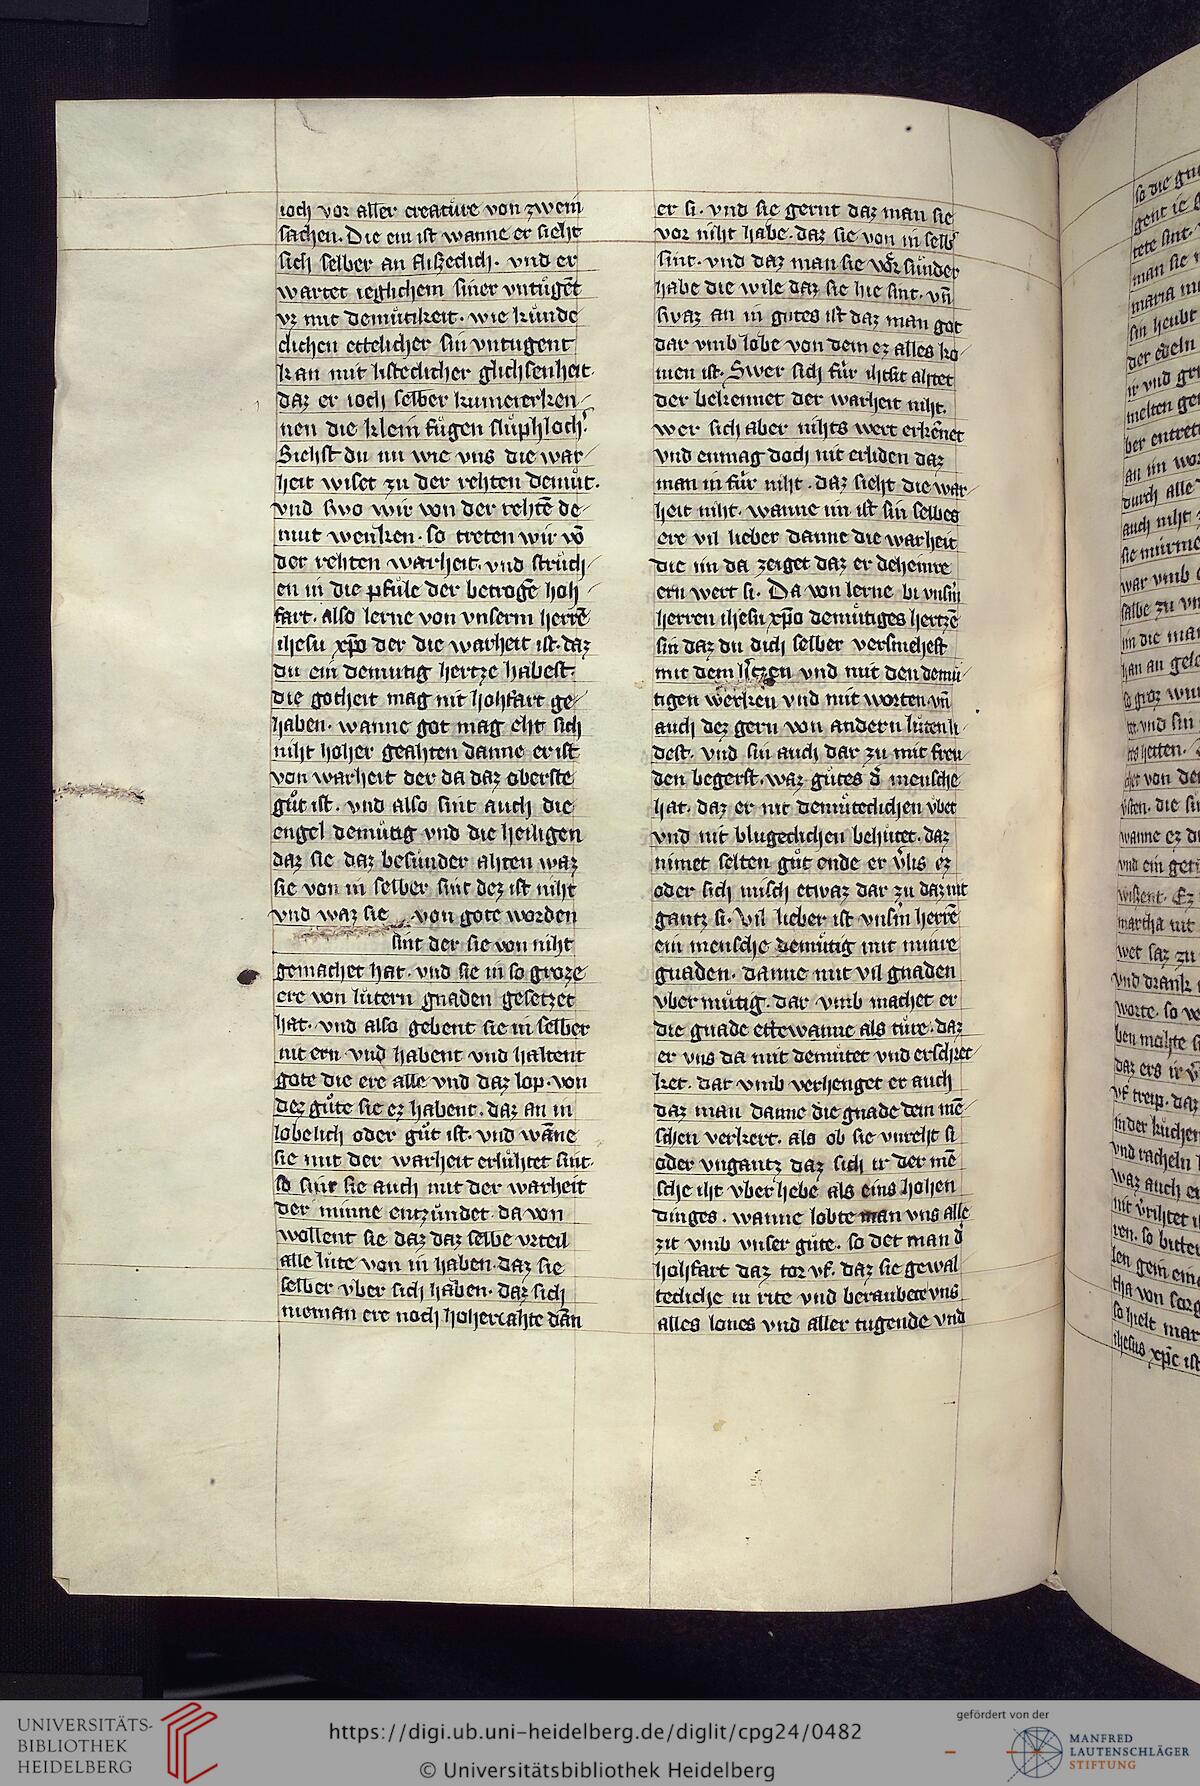 ioch vor aller creatuͤre von zwein
sachen. Die ein ist wanne er sieht
sich selber an flizeclich. vnd er
wartet ieglichem siner vntugēt
vz mit demuͤtikeit. wie kuͤnde
clichen ettelicher sin vntugent
kan mit listeclicher glichsenheit.
daz er ioch selber kume erken
nen die klein fuͤgen sluphloch͛.
Siehst du nu wie vns die war
heit wiset zu der rehten demuͤt.
vnd swo wir von der rehtē de
mut wenken. so treten wir vō
der rehten warheit. vnd struch
en in die pfuͤle der betrogē hoh
fart. also lerne von vnserm herrē
ihesu xp̄o der die warheit ist. daz
du ein demutig hertze habest.
die gotheit mag nit hohfart ge
haben. wanne got mag eht sich
niht hoher geahten danne er ist
von warheit der da daz oberste
guͤt ist. vnd also sint auch die
engel demuͤtig vnd die heiligen
daz sie daz besunder ahten waz
sie von in selber sint dez ist niht
vnd waz sie von gote worden
sint der sie von niht
gemachet hat. vnd sie in so groze
ere von lutern gnaden gesetzet
hat. vnd also gebent sie in selber
nit ern vnd habent vnd haltent
gote die ere alle vnd daz lop. von
dez guͤte sie ez habent. daz an in
lobelich oder guͤt ist. vnd wāne
sie mit der warheit erluhtet sint.
so sint sie auch mit der warheit
der minne entzuͤndet da von
wollent sie daz daz selbe vrteil
alle lute von in haben. daz sie
selber vber sich haben. daz sich
nieman ere noch hoher ahte dān
er si. vnd sie gernt daz man sie
vor niht habe. daz sie von in selb͛
sint. vnd daz man sie vor sunder
habe die wile daz sie hie sint. vn̄
swaz an in gutes ist daz man got
dar vmb lobe von dem ez alles ko
men ist. Swer sich fuͤr ihtit ahtet
der bekennet der warheit niht.
wer sich aber nihts wert erkēnet
vnd enmag doch nit erliden daz
man in fuͤr niht. daz sieht die war
heit niht. wanne im ist sin selbes
ere vil lieber danne die warheit
die im da zeiget daz er deheinre
ern wert si. Da von lerne bi vnsm̄
herren ihesu xp̄o demuͤtiges hertzē
sin daz du dich selber versmehest
mit dem h͛tzen vnd mit den demuͤ
tigen werken vnd mit worten. vn̄
auch dez gern von andern luten li
dest. vnd sin auch dar zu mit freu
den begerst. waz gutes d͛ mensche
hat. daz er nit demuͤteclichen vbet
vnd nit blugeclichen behutet. daz
nimet selten guͤt ende er v͛lis ez
oder sich misch etwaz dar zu daz nit
gantz si. Vil lieber ist vnsm̄ herrē
ein mensche demuͤtig mit minre
gnaden. danne mit vil gnaden
vber muͤtig. dar vmb machet er
die gnade ettewanne als tuͤre. daz
er vns da mit demuͤtet vnd erschrec
ket. dar vmb verhenget er auch
daz man danne die gnade dem mē
schen verkert. als ob sie vnreht si
oder vngantz daz sich ir der mē
sche iht vber hebe als eins hohen
dinges. wanne lobte man vns alle
zit vmb vnser guͤte. so det man d͛
hohfart daz tor vf. daz sie gewal
tecliche in rite vnd beraubete vns
alles lones vnd aller tugende vnd
UNIVERSITÄTS-
BIBLIOTHEK
HEIDELBERG
https://digi.ub.uni-heidelberg.de/diglit/cpg24/0482
© Universitätsbibliothek Heidelberg
gefördert von der
MANFRED
LAUTENSCHLÄGER
STIFTUNG